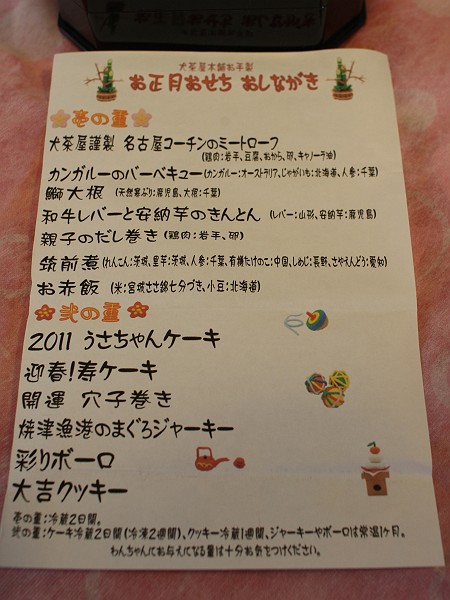 犬茶屋本舗お手製
お正月おせち おしながき
壱の重
犬茶屋謹製 名古屋コーチンのミートローフ
(鶏肉:岩手、豆腐、おから、卵、キャノーラ油)
カンガルーのバーベキュー(カンガルー:オーストラリア、じゃがいも:北海道、人参:千葉)
鰤大根 (天然寒ぶり:鹿児島、大根:千葉)
和牛レバーと安納芋のきんとん (レバー:山形、安納芋:鹿児島)
親子のだし巻き (鶏肉:岩手、卵)
筑前煮(れんこん:茨城、里芋:茨城、人参:千葉、有機たけのこ:中国、しめじ:長野、さやえんどう:愛知)
お赤飯 (米:宮城ささ錦七分づき、小豆:北海道)
弐の重
2011 うさちゃんケーキ
迎春!寿ケーキ
開運 穴子巻き
焼津漁港のまぐろジャーキー
彩りボーロ
大吉クッキー
壱の重:冷蔵2日間。
弐の重:ケーキ冷蔵2日間(冷凍2週間)、クッキー冷蔵1週間、ジャーキーやボーロは常温1ヶ月。
わんちゃんにお与えになる量は十分お気をつけください。